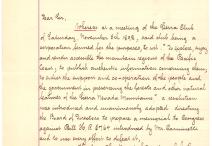 Dear Sir,
Whereas at a meeting of the Sierra Club
of Saturday November 5th 1892, said club being a
corporation formed for the purposes, to wit: "To explore, enjoy
and render accessible the mountain regions of the Pacific
Coast; to publish authentic information concerning them;
to enlist the support and co-operation of the people and
the government in preserving the forests and other natural
features of the Sierra Nevada Mountains" a resolution
was introduced and unanimously adopted directing
the Board of Directors to prepare a memorial to Congress
against Bill H.R. 5764 introduced by Mr. Caminetti
and to use every effort to defeat it;